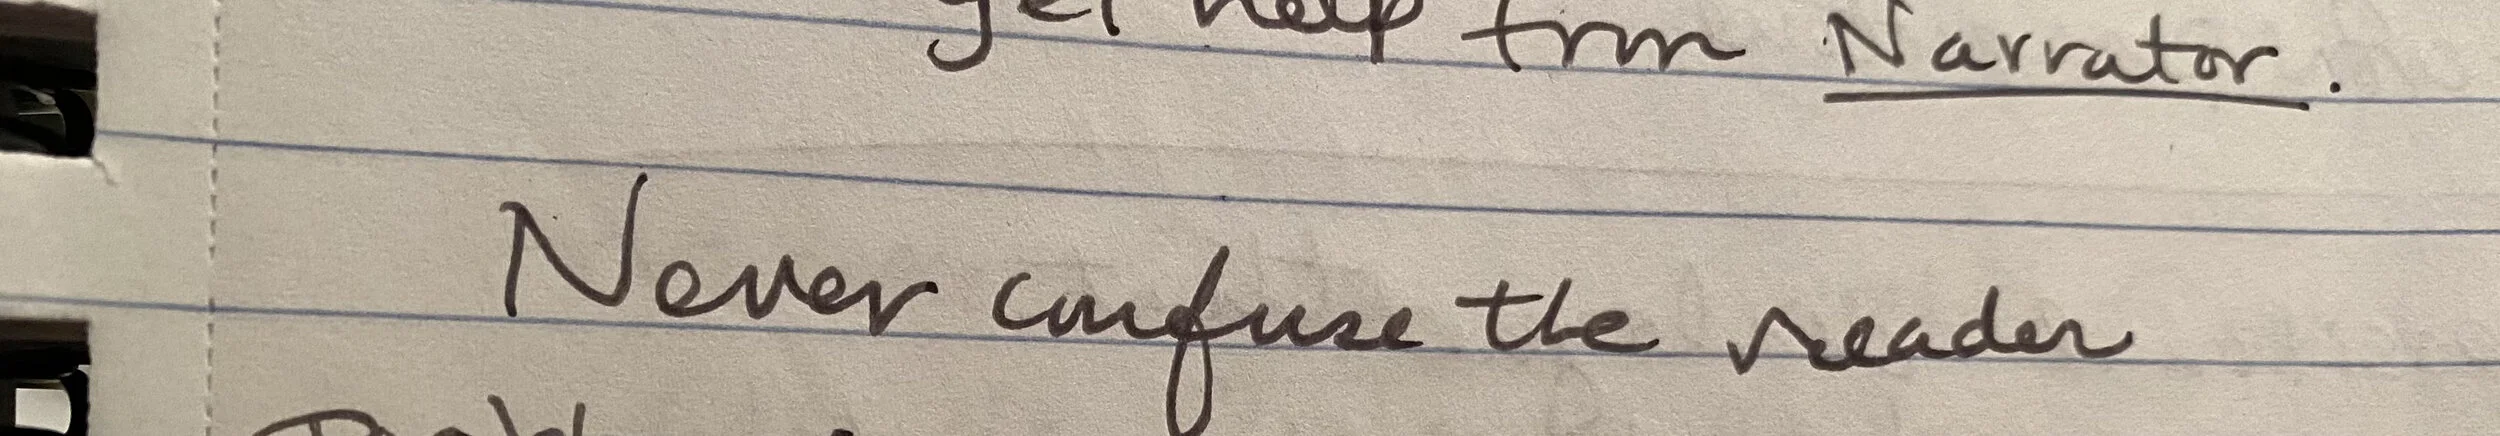 get help from Narrator.
Never confuse the reader